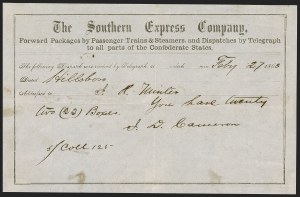 The Southern Express Company,
Forward Packages by Passenger Trains & Steamers and Dispatches by Telegraph
to all parts of the Confederate States.
The following Dispatch was received by Telegraph at o'clock min Feby 27 1863
Dated Hillsboro
Addressed to A. R. Hunter
You have twenty
two (22) Boxes
J. D. Cameron
8/Coll 125